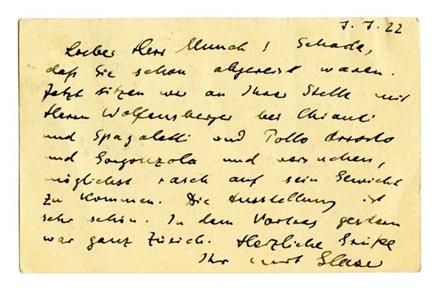 7.7.22
Lieber Herr Munch! Schade,
daß Sie schon abgereist waren.
Jetzt sitzen wir an Ihrer Stelle mit
Herrn Wolfensberger bei Chianti
und Spagaletti und Pollo arrosto
und Gorgonzola und versuchen,
möglichst rasch auf sein Gewicht
zu kommen. Die Ausstellung ist
sehr schön. In dem Vortrag gestern
war ganz Zürich. Herzliche Grüße
Ihr Curt Glaser